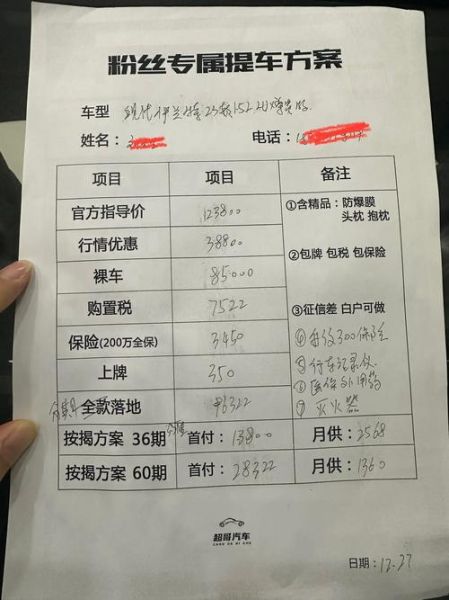 粉丝专属提车方案
车型 现代伊兰特23款1.5L
姓名：
电话：
项目 项目 备注
官方指导价 123800 ①含精品：防爆膜
头枕 抱枕
行情优惠 38800 ②包牌 包税 包保险
裸车 85000
购置税 7522 ③征信差 白户可做
保险(200万全保) 3450 ④ 300保
上牌 350 ⑤行车记录仪
⑥医保外用药
全款落地 96322 ⑦灭火器
按揭方案 36期 首付：13800 月供：2568
按揭方案 60期 首付：28322 月供：1360
超哥汽车
CHAO GE QI CHE
日期：12.27